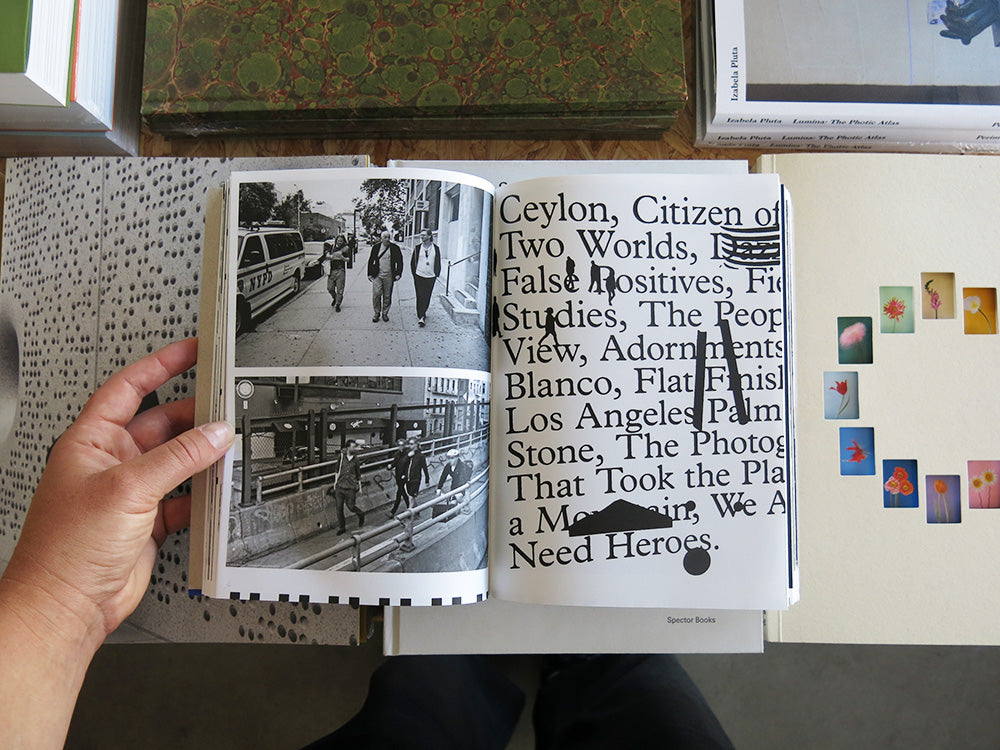 Izabela Pluta
Izabela Pluta Lumina: The Photic Atlas
Izabela Pluta Lumina: The Photic Atlas
NYPD
Ceylon, Citizen of
Two Worlds,
False Positives, Fie
Studies, The Peop
View, Adornments
Blanco, Flat Finish
Los Angeles Palm
Stone, The Photog
That Took the Pla
a Mountain, We A
Need Heroes.
Spector Books